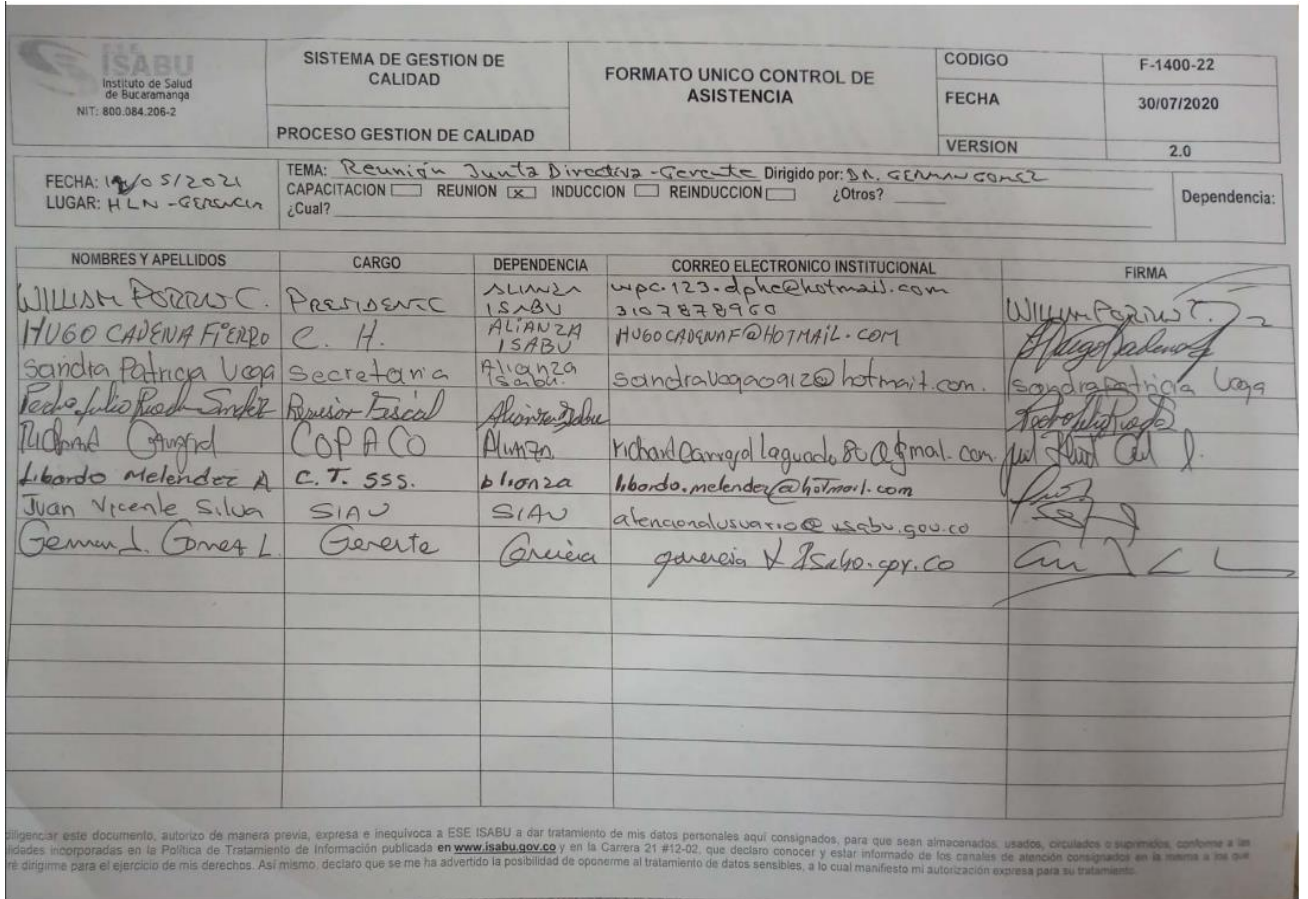 ESE
ISABU
Instituto de Salud
de Bucaramanga
NIT: 800.084.206-2
SISTEMA DE GESTION DE
CALIDAD
PROCESO GESTION DE CALIDAD
FORMATO UNICO CONTROL DE
ASISTENCIA
CODIGO F-1400-22
FECHA 30/07/2020
VERSION 2.0
FECHA: /05/2021
LUGAR: HLN - GERENCIA
TEMA: Reunión Junta Directiva - Gerente Dirigido por: DR. GERMAN GOMEZ
CAPACITACION REUNION X INDUCCION REINDUCCION ¿Otros?
¿Cual?
Dependencia:
NOMBRES Y APELLIDOS CARGO DEPENDENCIA CORREO ELECTRONICO INSTITUCIONAL FIRMA
WILLIAM PORRAS C. PRESIDENTE ALIANZA ISABU wpc.123.dphc@hotmail.com 3107878960 WILLIAM PORRAS C.
HUGO CADENA FiERRO C. H. ALiANZA ISABU HUGOCADENAF@HOTMAiL.COM Hugo Cadena
Sandra Patricia Vega Secretaria Alianza Isabu. sandravega0912@hotmail.com. Sandra Patricia Vega
Pedro Julio Rueda Revisor Fiscal Alianza Isabu
Richard Carvajal COPACO Alianza richardcarvajallaguado80@gmail.com
Libardo Melendez A C. T. SSS. Alianza libardo.melendez@hotmail.com
Juan Vicente Silva SIAU SIAU atencionalusuario@isabu.gov.co
German J. Gomez L. Gerente Gerencia gerencia
diligenciar este documento, autorizo de manera previa, expresa e inequivoca a ESE ISABU a dar tratamiento de mis datos personales aqui consignados, para que sean almacenados, usados, circulados o suprimidos, conforme a las
incorporadas en la Política de Tratamiento de Información publicada en www.isabu.gov.co y en la Carrera 21 #12-02, que declaro conocer y estar informado de los canales de atención consignados en la misma a los que
dirigirme para el ejercicio de mis derechos. Así mismo, declaro que se me ha advertido la posibilidad de oponerme al tratamiento de datos sensibles, a lo cual manifiesto mi autorización expresa para su tratamiento.